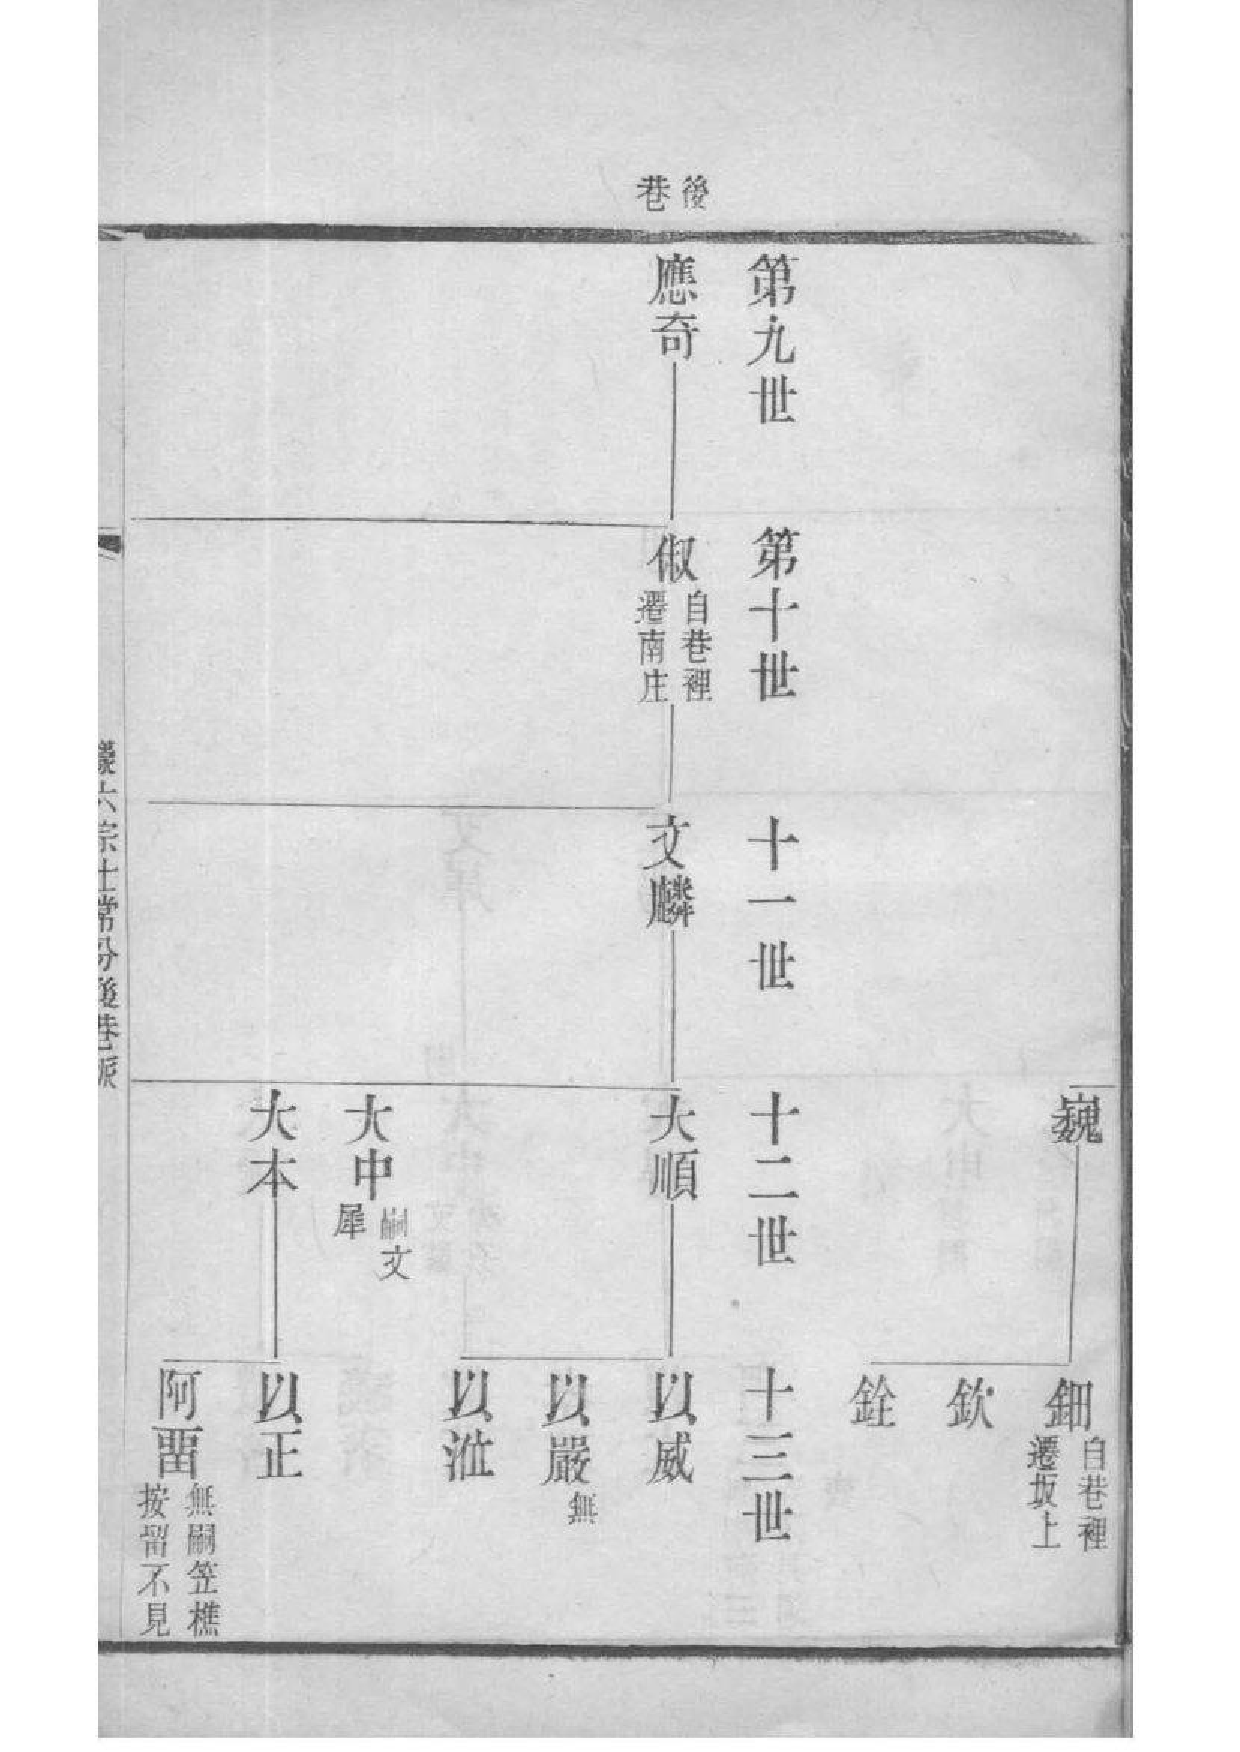 後巷
巍
鈿
自巷裡
遷坂上
欽
銓
第九世
第十世
十一世
十二世
十三世
應奇
俶
自巷裡
遷南庄
文麟
大順
以威
以嚴
無
以㳣
大中
嗣文
犀
大本
以正
阿畱
無嗣笠樵
按留不見
六宗士常分後巷派